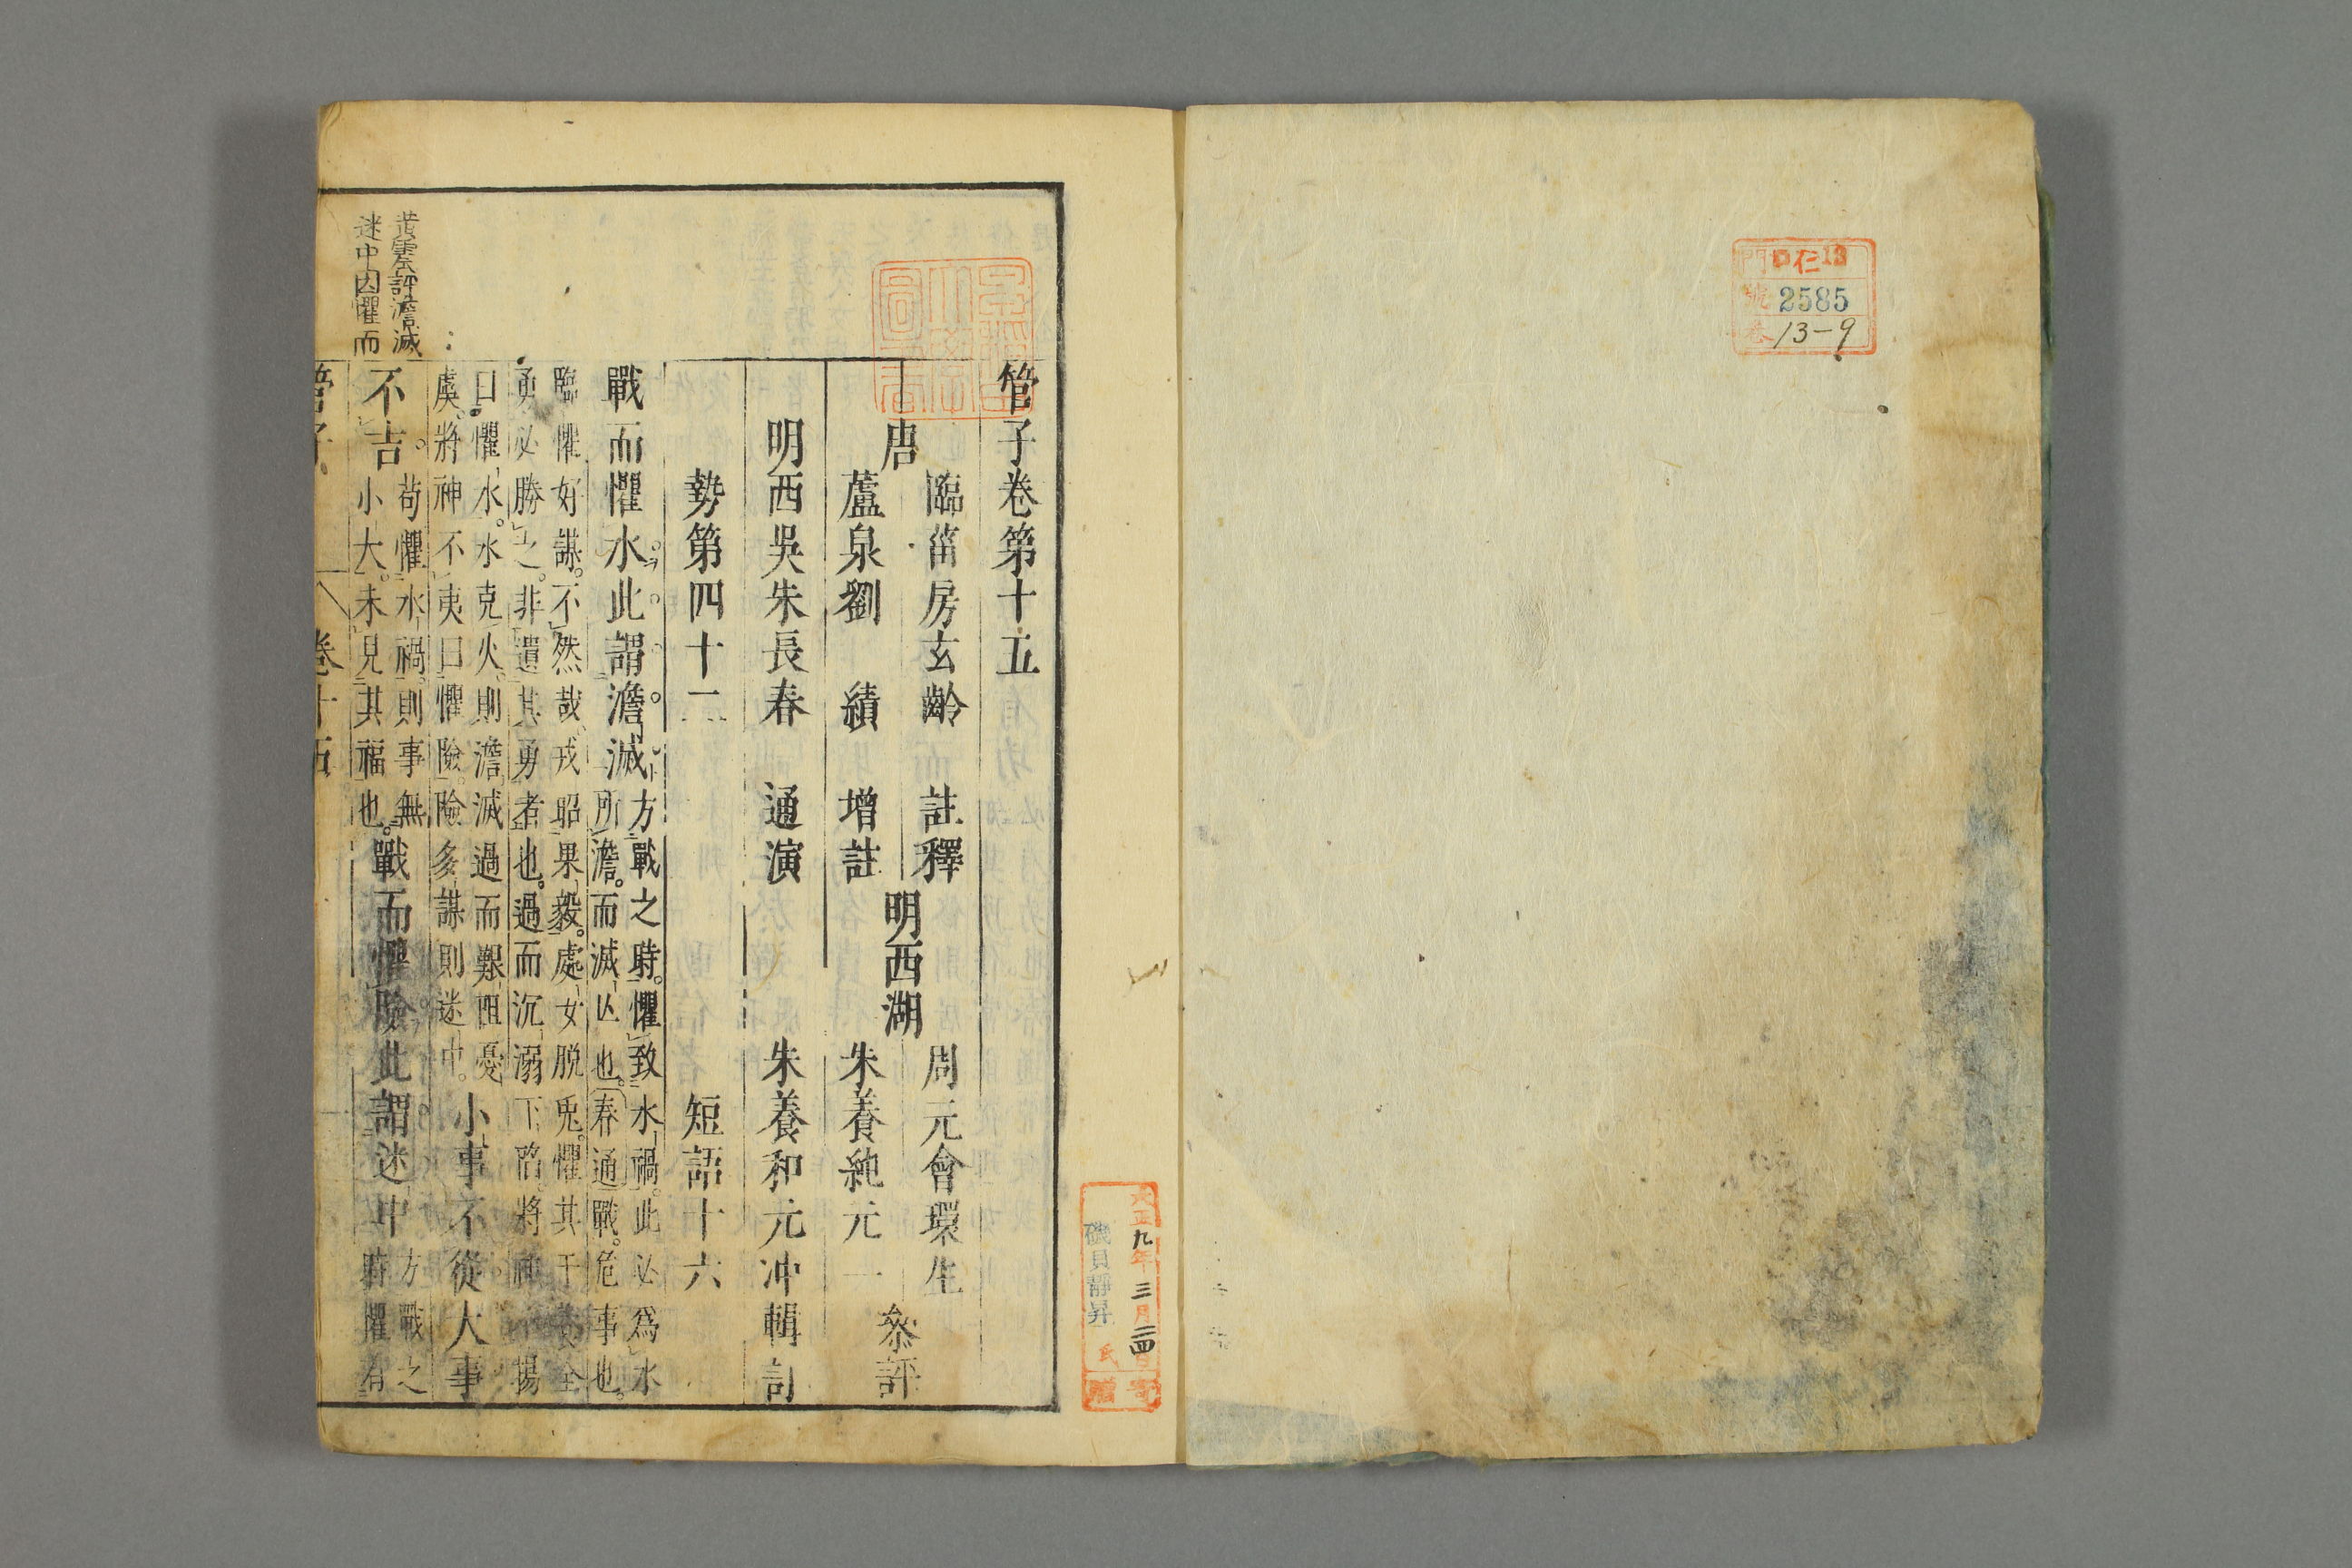 仁
13
2585
13-9
大正九年三月二四日
磯貝靜昇氏
寄贈
管子卷第十五
唐
臨菑房玄齡 註釋
蘆泉劉 績 增註
明西湖
周元會環生
朱養純元一
叅評
明西吳朱長春 通演 朱養和元冲輯訂
勢第四十二 短語十六
戰而懼水此謂澹滅
方戰之時懼致水禍此必爲水
所澹而滅亾也春通戰危事也
臨懼好謀不然哉戎昭果毅處女脫兎懼其干
勇必勝之非遺其勇者也過而沉溺下陷將神不揚
曰懼水水克火則澹滅過而艱阻憂
虞將神不夷曰懼險險多謀則迷中
小事不從大事
不吉
苟懼水禍則事無
小大未見其福也
戰而懼險此謂迷中
方戰之
時懼有
黃震評澹滅
迷中因懼而
管子
卷十五